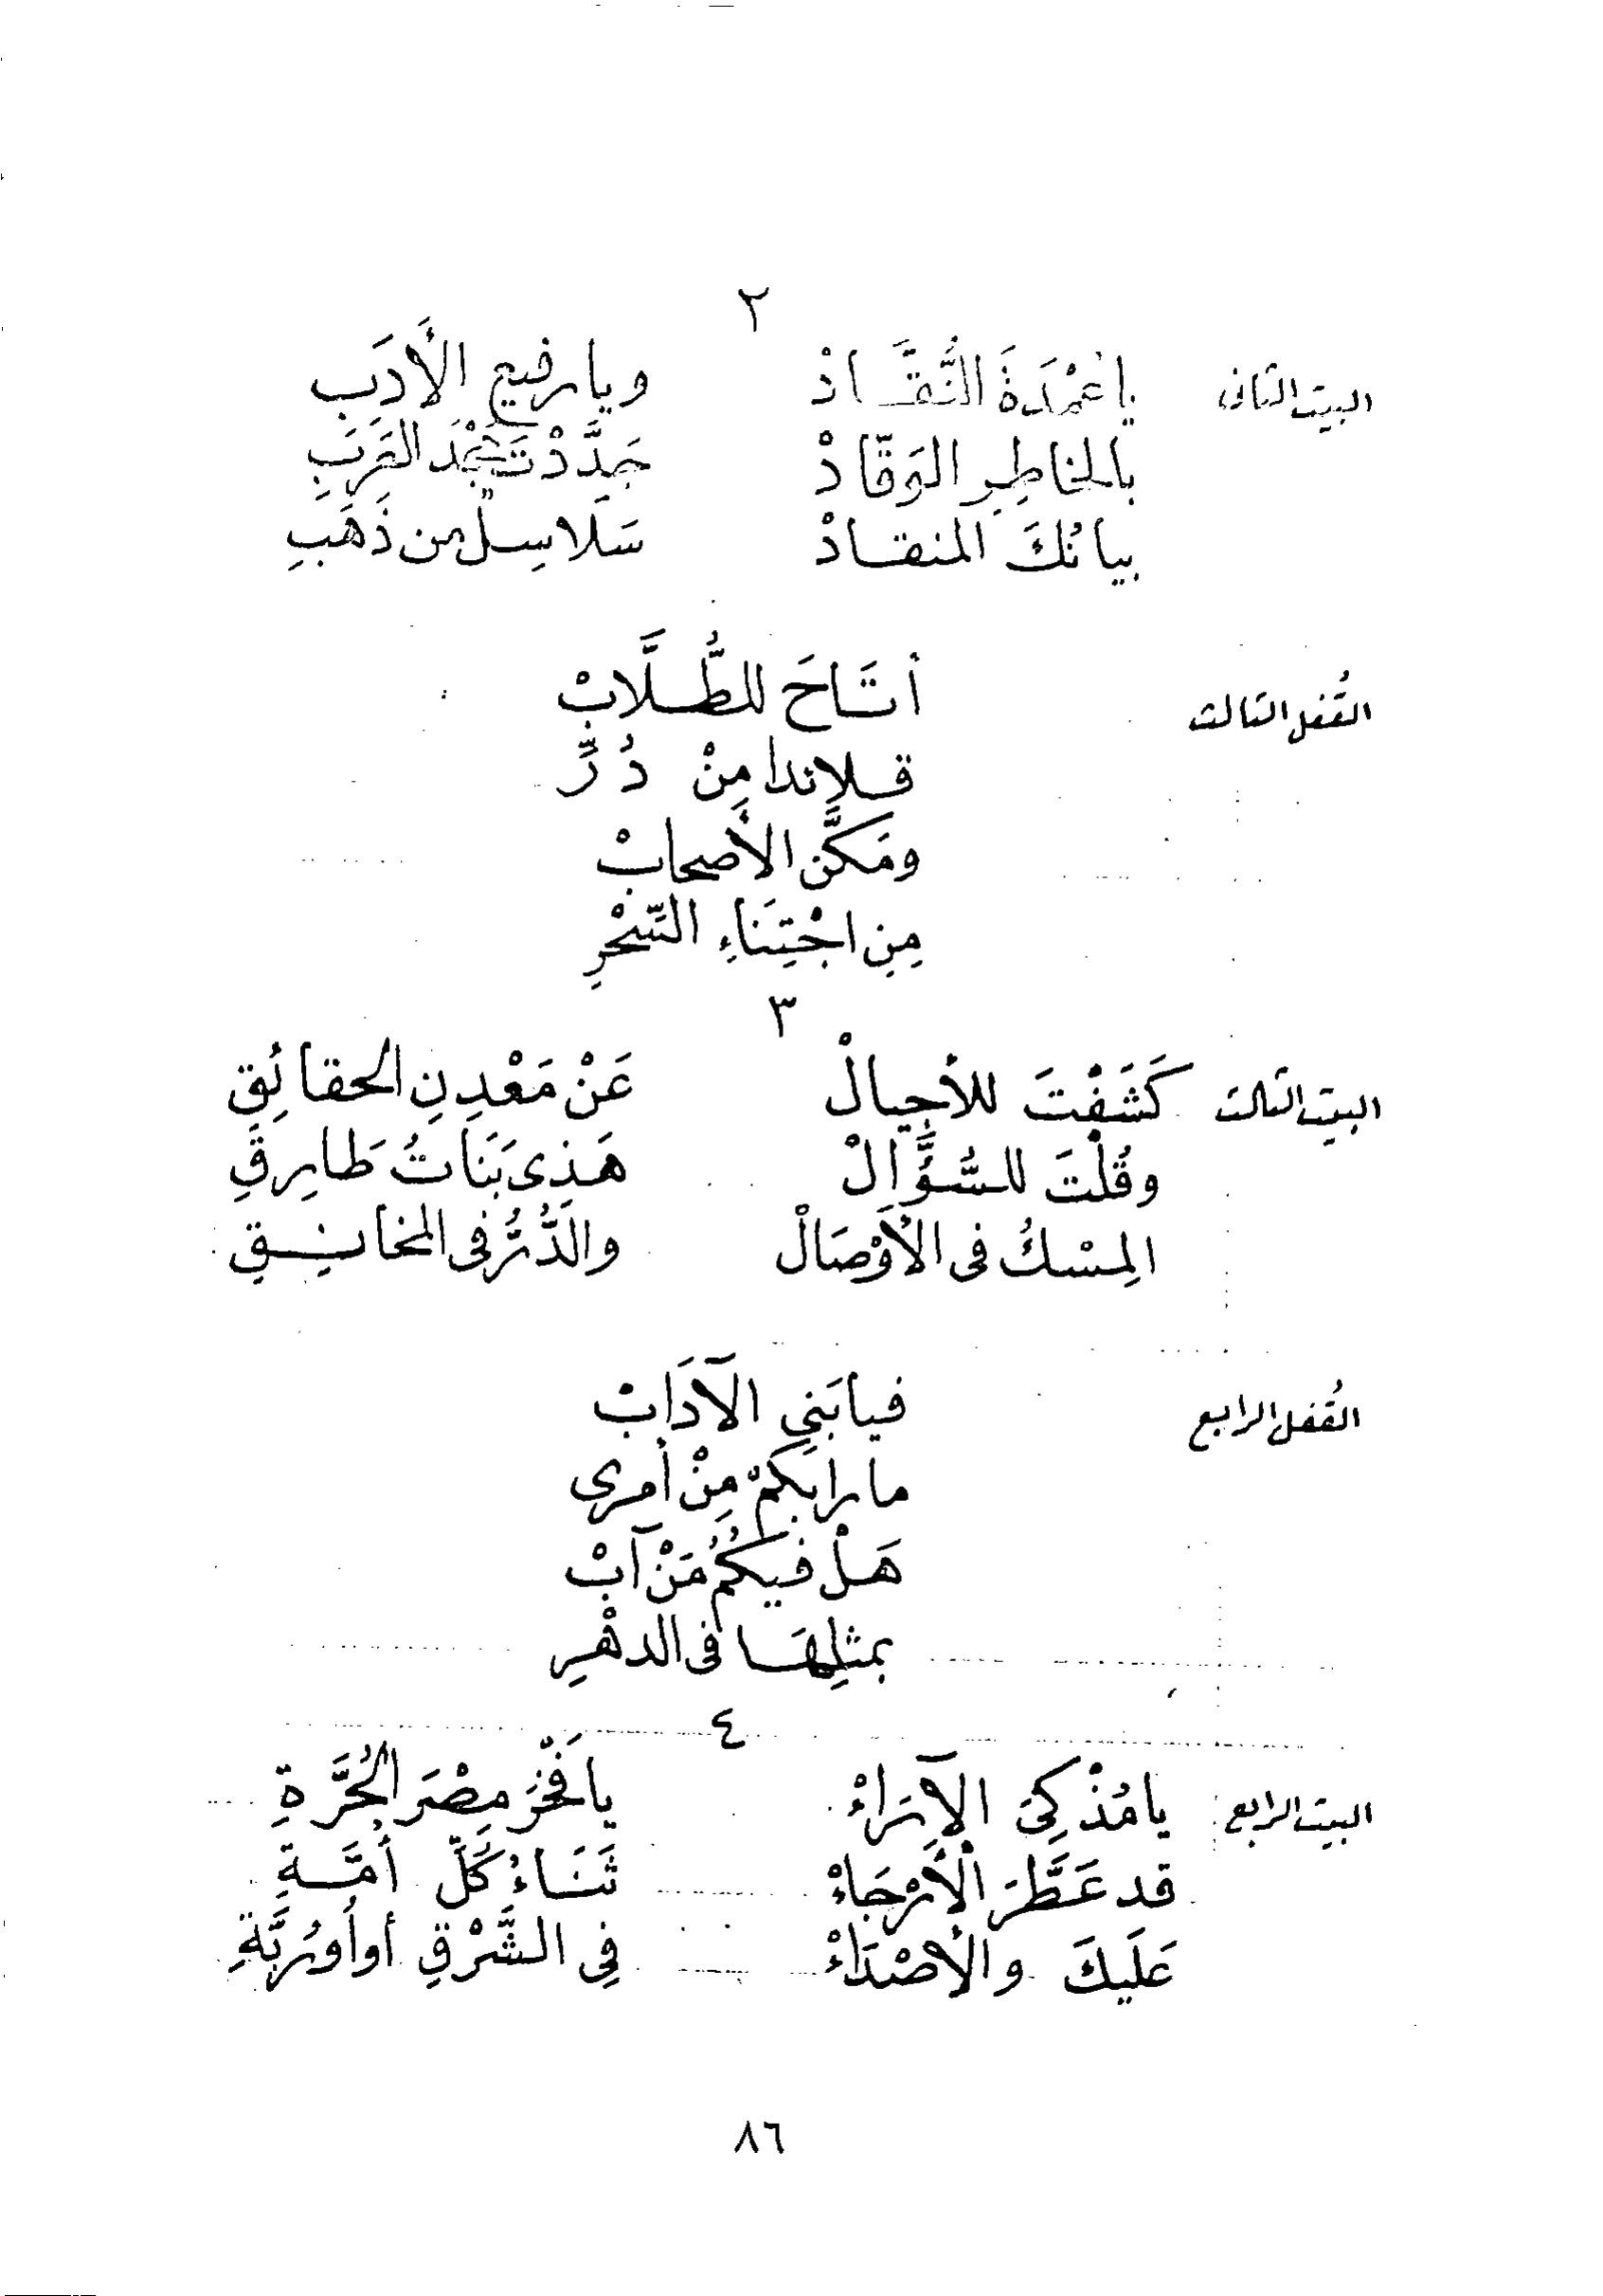 ٢
البيت الثانى يا عُمْدَةَ النُّقَّادْ ويا رفيع الأَدَبِ
بالخاطِرِ الوَقّادْ جَدَّدْتَ مَجْدَ العَرَبِ
بيانُكَ المنقادْ سَلاسِلٌ من ذَهَبِ
القُفل الثالث أتَاحَ للطُّلَّابْ
قلائدا مِنْ دُرِّ
ومَكَّن الأَصحابْ
مِنِ اجْتِنَاءِ السِّحْرِ
٣
البيت الثالث كَشَفْتَ للأجيالْ عَنْ مَعْدِنِ الحقائِقِ
وقُلْتَ للسُّؤَّالْ هَذِى بَنَاتُ طَارِقِ
المِسْكُ فى الأَوْصَالْ والدُّرُّ فى المخانِقِ
القُفل الرابع فيا بَنِي الآدَابْ
ما رابكمْ مِنْ أمرى
هَلْ فيكُمُ مَنْ آبْ
بمثلِهَا فى الدهْرِ
٤
البيت الرابع يا مُذْكِىَ الآرَاءْ يا فَخْرَ مِصْرَ الحُرَّةِ
قد عَطَّرَ الأَرْجَاءْ ثَنَاءُ كُلِّ أمَّةِ
عَلَيكَ والأَصْدَاءْ فِي الشَّرْقِ أو أورُبَّةِ
٨٦